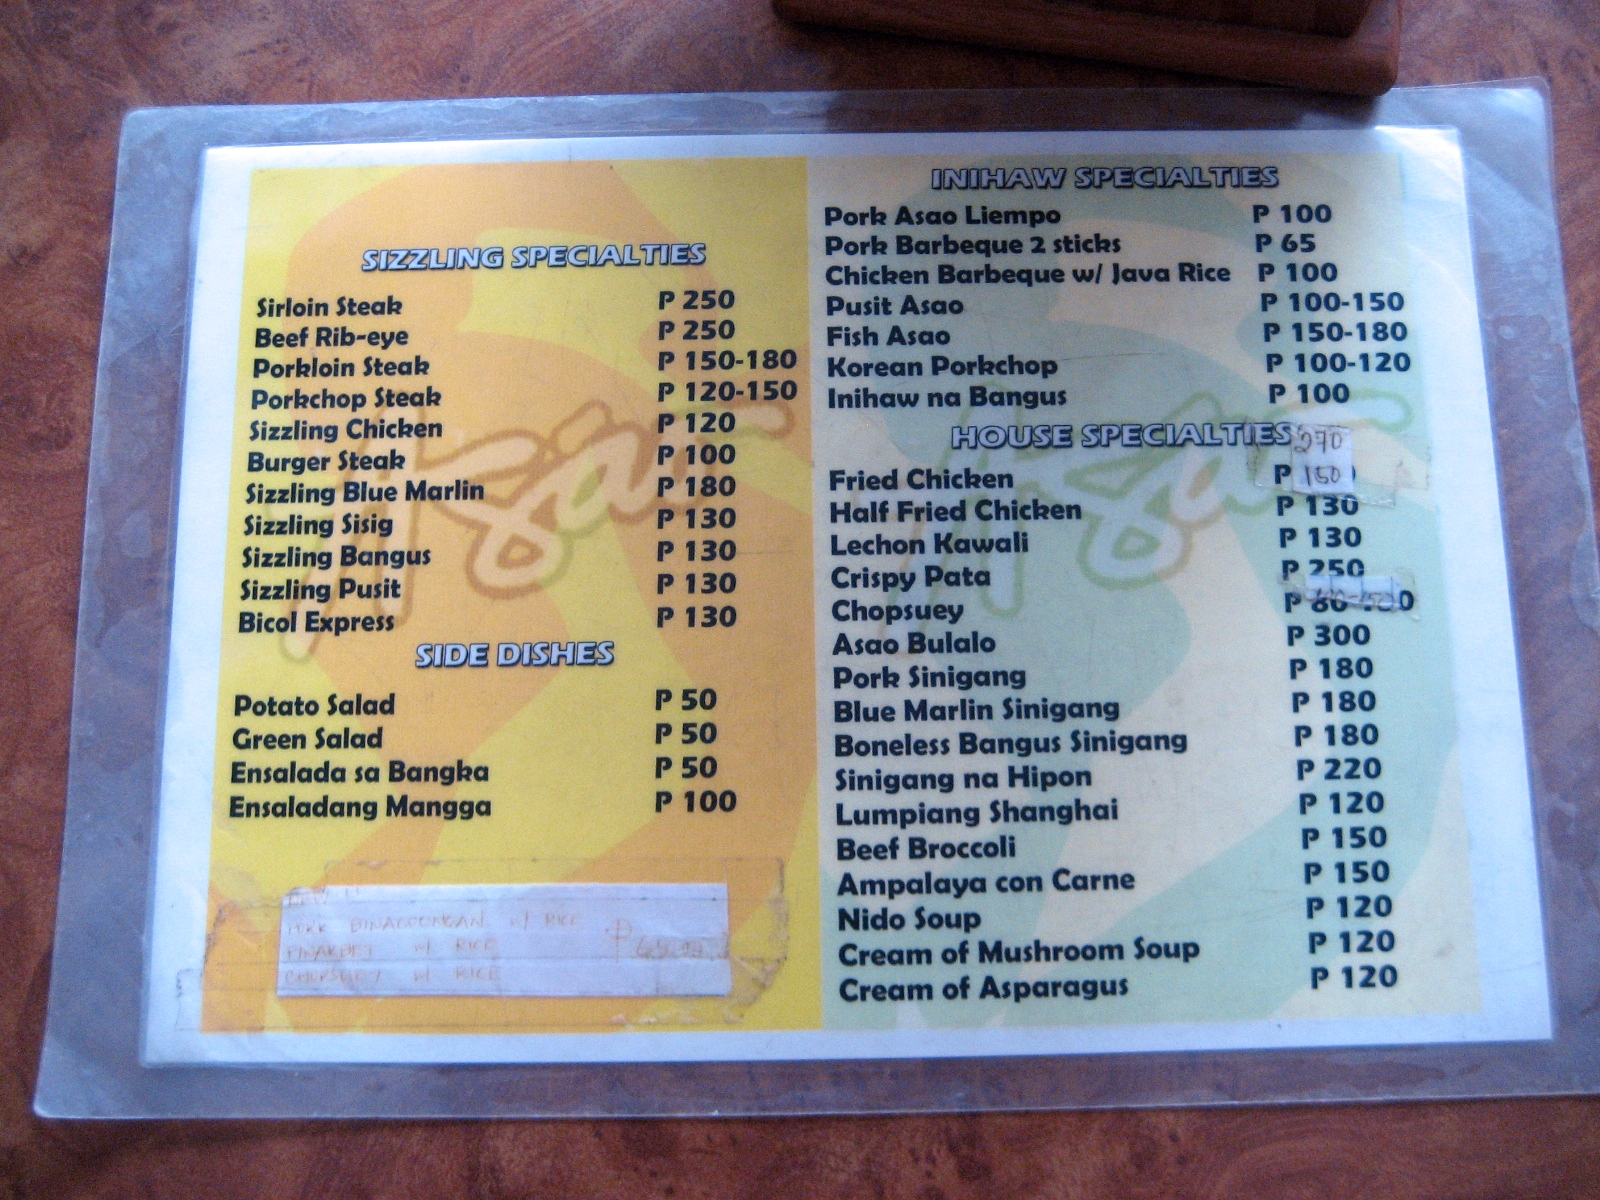 SIZZLING SPECIALTIES
Sirloin Steak P 250
Beef Rib-eye P 250
Porkloin Steak P 150-180
Porkchop Steak P 120-150
Sizzling Chicken P 120
Burger Steak P 100
Sizzling Blue Marlin P 180
Sizzling Sisig P 130
Sizzling Bangus P 130
Sizzling Pusit P 130
Bicol Express P 130
SIDE DISHES
Potato Salad P 50
Green Salad P 50
Ensalada sa Bangka P 50
Ensaladang Mangga P 100
PORK BINAGOONGAN W/ RICE
PINAKBET W/ RICE
CHOPSUEY W/ RICE
INIHAW SPECIALTIES
Pork Asao Liempo P 100
Pork Barbeque 2 sticks P 65
Chicken Barbeque w/ Java Rice P 100
Pusit Asao P 100-150
Fish Asao P 150-180
Korean Porkchop P 100-120
Inihaw na Bangus P 100
HOUSE SPECIALTIES
270
Fried Chicken P 150
Half Fried Chicken P 130
Lechon Kawali P 130
Crispy Pata P 250
Chopsuey P
Asao Bulalo P 300
Pork Sinigang P 180
Blue Marlin Sinigang P 180
Boneless Bangus Sinigang P 180
Sinigang na Hipon P 220
Lumpiang Shanghai P 120
Beef Broccoli P 150
Ampalaya con Carne P 150
Nido Soup P 120
Cream of Mushroom Soup P 120
Cream of Asparagus P 120